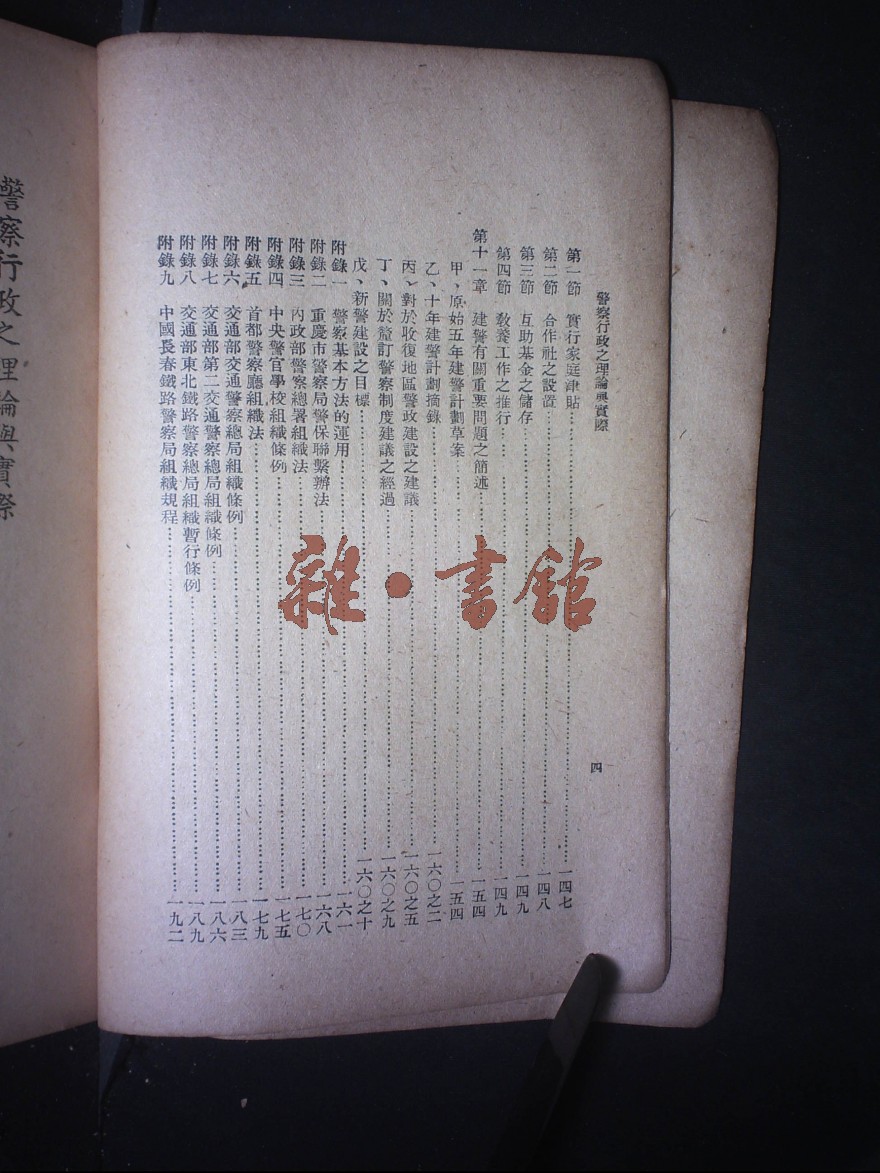 警察行政之理論與實際
四
第一節　實行家庭津貼……一四七
第二節　合作社之設置……一四八
第三節　互助基金之儲存……一四九
第四節　敎養工作之推行……一四九
第十一章　建警有關重要問題之簡述……一五四
甲、原始五年建警計劃草案……一五四
乙、十年建警計劃摘錄……一六〇之二
丙、對於收復地區警政建設之建議……一六〇之五
丁、關於釐訂警察制度建議之經過……一六〇之九
戊、新警建設之目標……一六〇之十
附錄一　警察基本方法的運用……一六一
附錄二　重慶市警察局警保聯繫辦法……一六八
附錄三　內政部警察總署組織法……一七〇
附錄四　中央警官學校組織條例……一七五
附錄五　首都警察廳組織法……一七九
附錄六　交通部交通警察總局組織條例……一八三
附錄七　交通部第二交通警察總局組織條例……一八六
附錄八　交通部東北鐵路警察總局組織暫行條例……一八九
附錄九　中國長春鐵路警察局組織規程……一九二
警察行政之理論與實際
雜·書館